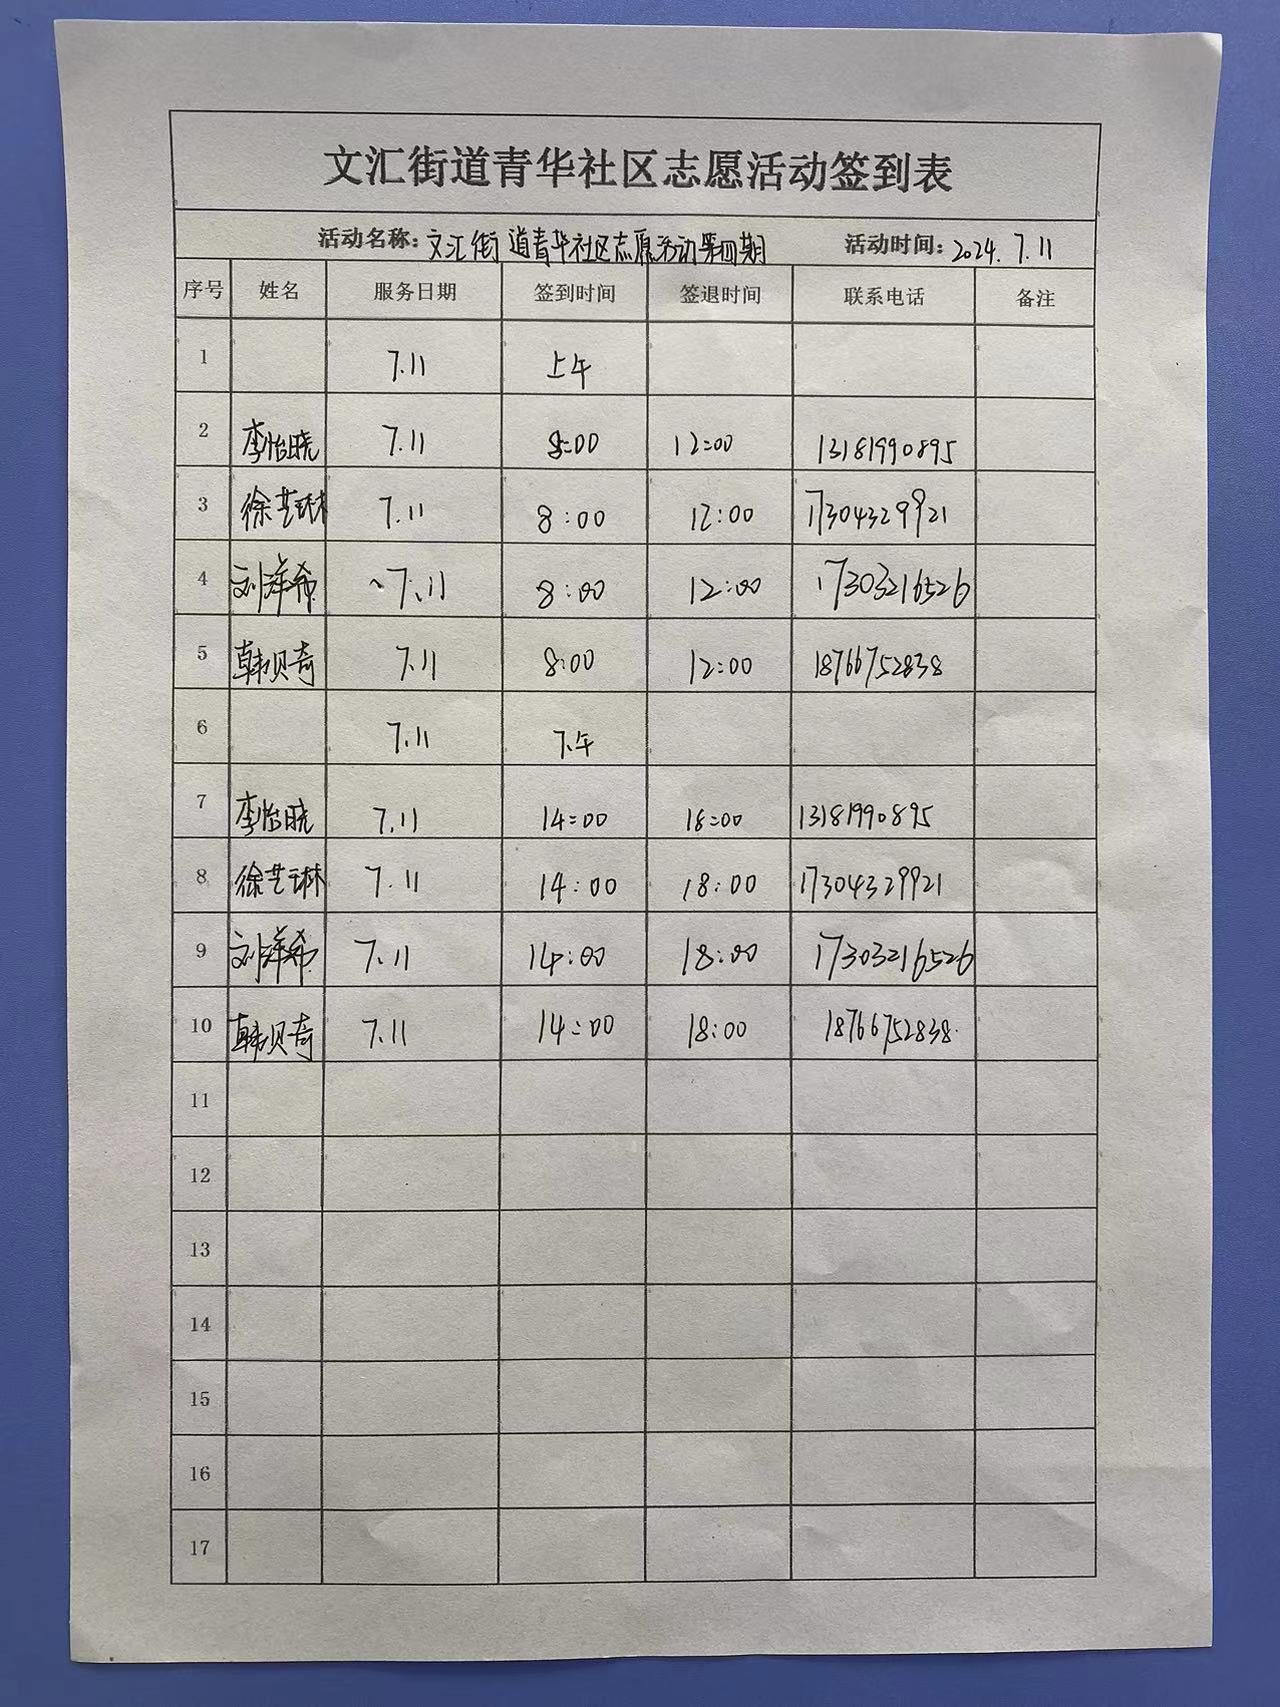 文汇街道青华社区志愿活动签到表
活动名称: 文汇街道青华社区志愿活动第四期 活动时间: 2024.7.11
序号 姓名 服务日期 签到时间 签退时间 联系电话 备注
1 7.11 上午
2 李怡晓 7.11 8:00 12:00 13181990895
3 徐艺琳 7.11 8:00 12:00 17304329921
4 刘洋希 7.11 8:00 12:00 17303216526
5 韩贝奇 7.11 8:00 12:00 18766752838
6 7.11 下午
7 李怡晓 7.11 14:00 18:00 13181990895
8 徐艺琳 7.11 14:00 18:00 17304329921
9 刘洋希 7.11 14:00 18:00 17303216526
10 韩贝奇 7.11 14:00 18:00 18766752838
11
12
13
14
15
16
17